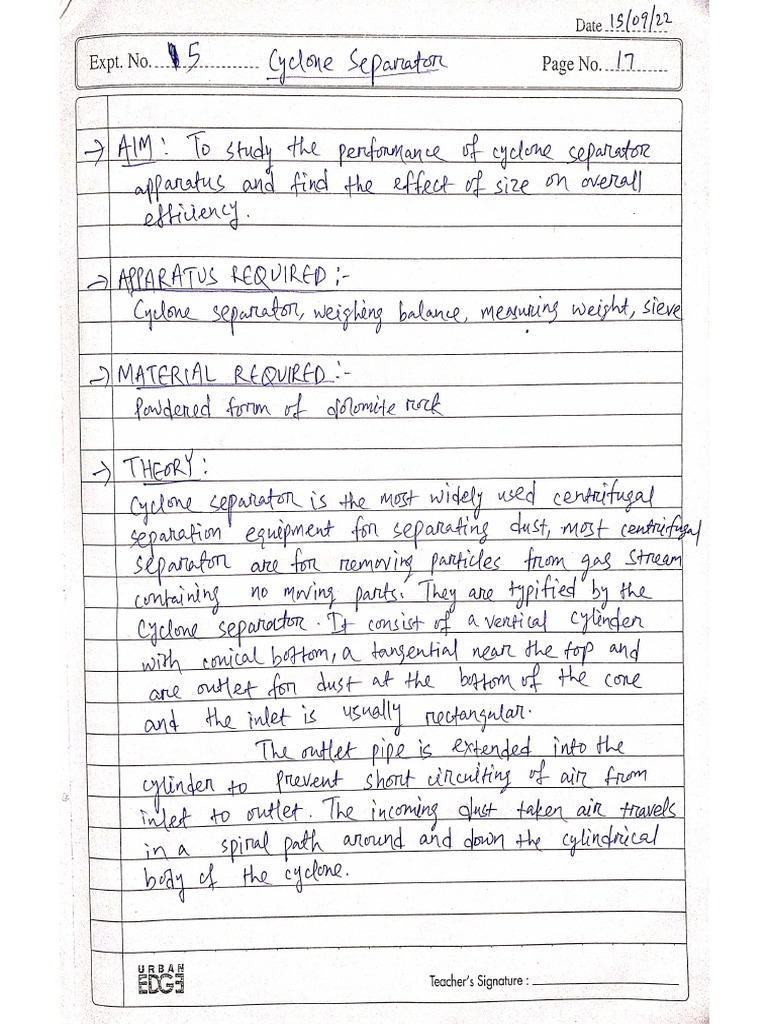 Date 15/09/22
Expt. No. 5 Cyclone Separator Page No. 17
→ AIM: To study the performance of cyclone separator
apparatus and find the effect of size on overall
efficiency.
→ APPARATUS REQUIRED :-
Cyclone separator, weighing balance, measuring weight, sieve
→ MATERIAL REQUIRED :-
Powdered form of dolomite rock
→ THEORY :
Cyclone separator is the most widely used centrifugal
separation equipment for separating dust, most centrifugal
separator are for removing particles from gas stream
containing no moving parts. They are typified by the
Cyclone separator. It consist of a vertical cylinder
with conical bottom, a tangential near the top and
are outlet for dust at the bottom of the cone
and the inlet is usually rectangular.
The outlet pipe is extended into the
cylinder to prevent short circuiting of air from
inlet to outlet. The incoming dust taken air travels
in a spiral path around and down the cylindrical
body of the cyclone.
URBAN
EDGE
Teacher's Signature :